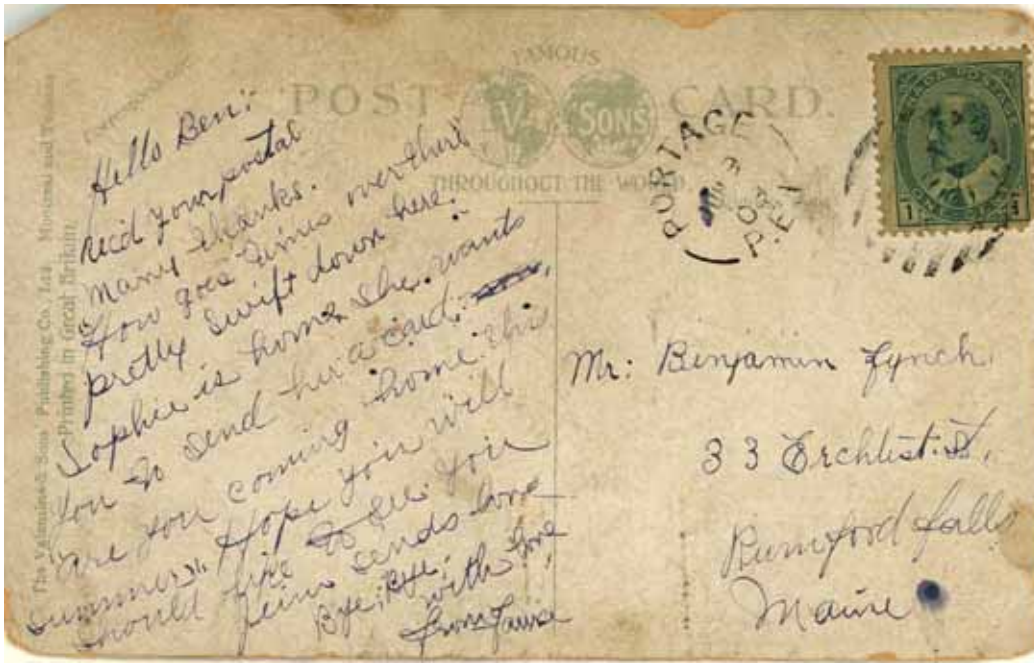 FAMOUS
POST CARD.
V & SONS
THROUGHOUT THE WORLD.
The Valentine & Sons Publishing Co., Ltd. Montreal and
Printed in Great Britain.
Correspondence
Hello Ben:
Rec'd your postal
Many thanks.
How goes times over there
pretty swift down here.
Sophie is home. She wants
you to send her a card.
are you coming home this
summer. Hope you will
should like to see you
sends love
Bye, Bye.
with love
from
PORTAGE
P.E.I
Mr: Benjamin Lynch.
33 St,
Rumford Falls
Maine